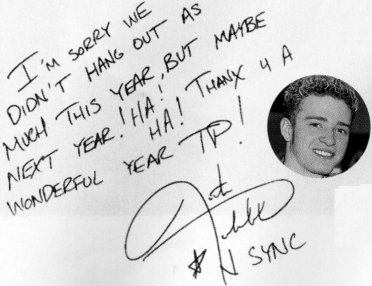 I'M SORRY WE
DIDN'T HANG OUT AS
MUCH THIS YEAR, BUT MAYBE
NEXT YEAR! HA! THANX 4 A
HA!
WONDERFUL YEAR TP!
* N SYNC